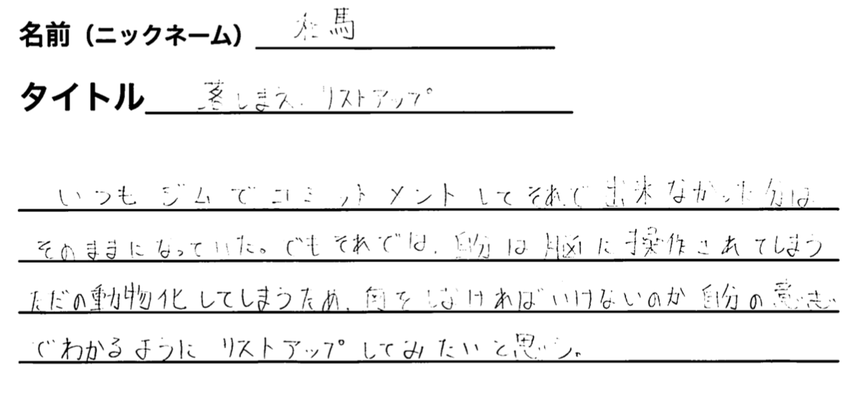 名前（ニックネーム） 馬
タイトル 落しまえ、リストアップ
いつもジムでコミットメントしてそれで出来なかった分は
そのままになっていた。でもそれでは、自分は脳に操作されてしまう
ただの動物化してしまうため、何をしなければいけないのか自分の意志
でわかるようにリストアップしてみたいと思う。